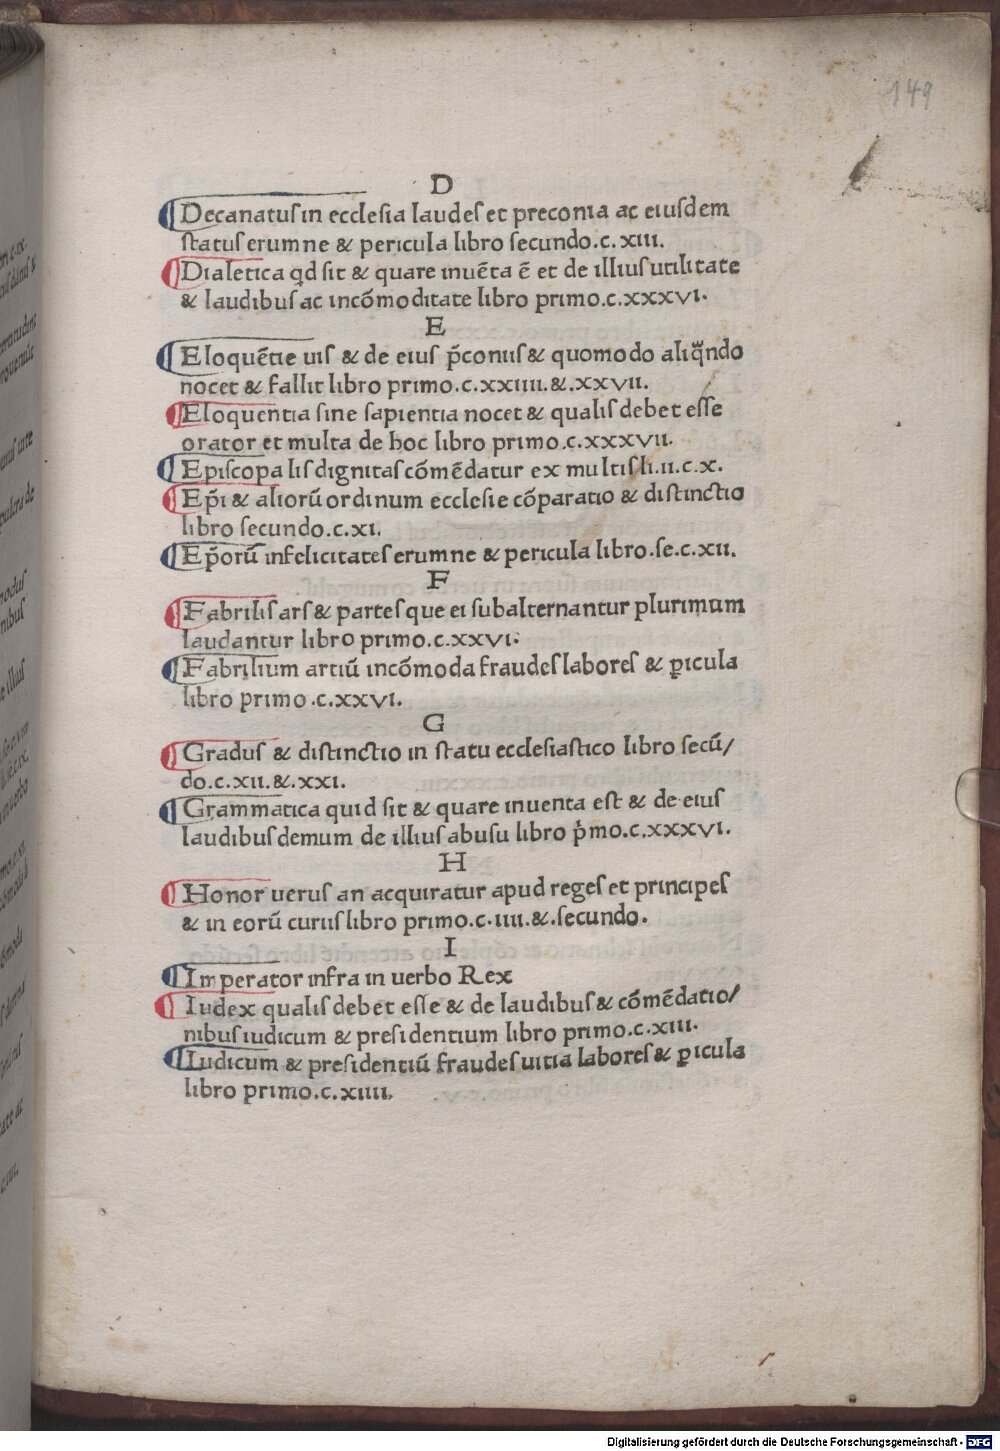 149
D
Decanatus in ecclesia laudes et preconia ac eiusdem
status erumne & pericula libro secundo.c.xiii.
Dialetica qd sit & quare inuēta ē et de illius utilitate
& laudibus ac incōmoditate libro primo.c.xxxvi.
E
Eloquētie uis & de eius p̄coniis & quomodo aliqn̄do
nocet & fallit libro primo.c.xxiiii.&.xxvii.
Eloquentia sine sapientia nocet & qualis debet esse
orator et multa de hoc libro primo.c.xxxvii.
Episcopalis dignitas cōmēdatur ex multis li.ii.c.x.
Ep̄i & aliorū ordinum ecclesie cōparatio & distinctio
libro secundo.c.xi.
Ep̄orū infelicitates erumne & pericula libro.se.c.xii.
F
Fabrilis ars & partes que ei subalternantur plurimum
laudantur libro primo.c.xxvi.
Fabrilium artiū incōmoda fraudes labores & ꝑicula
libro primo.c.xxvi.
G
Gradus & distinctio in statu ecclesiastico libro secū/
do.c.xii.&.xxi.
Grammatica quid sit & quare inuenta est & de eius
laudibus demum de illius abusu libro p̄mo.c.xxxvi.
H
Honor uerus an acquiratur apud reges et principes
& in eorū curiis libro primo.c.iiii.&.secundo.
I
Imperator infra in uerbo Rex
Iudex qualis debet esse & de laudibus & cōmēdatio/
nibus iudicum & presidentium libro primo.c.xiii.
Iudicum & presidentiū fraudes uitia labores & ꝑicula
libro primo.c.xiiii.
Digitalisierung gefördert durch die Deutsche Forschungsgemeinschaft - DFG